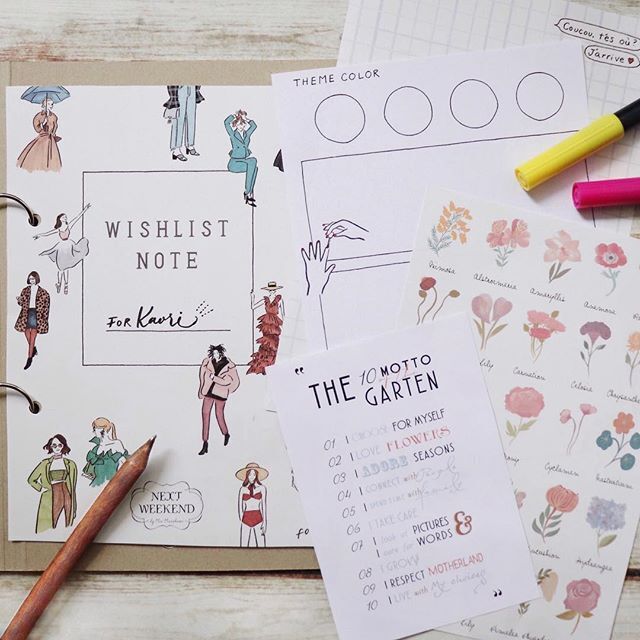 WISHLIST
NOTE
FOR Kaori
NEXT
WEEKEND
THEME COLOR
Coucou, t'es où?
J'arrive
"THE 10 MOTTO
OF
GARTEN
01 I CHOOSE FOR MYSELF
02 I LOVE FLOWERS
03 I ADORE SEASONS
04 I CONNECT with People
05 I SPEND TIME with
06 I TAKE CARE
07 I look at PICTURES &
I care for WORDS
08 I GROW
09 I RESPECT MOTHERLAND
10 I LIVE with My choices
"
Mimosa
Alstroemeria
Amaryllis
Anemone
Lily
Carnation
Celosia
Chrysanthe
Cyclamen
Nasturtium
Hydrangea